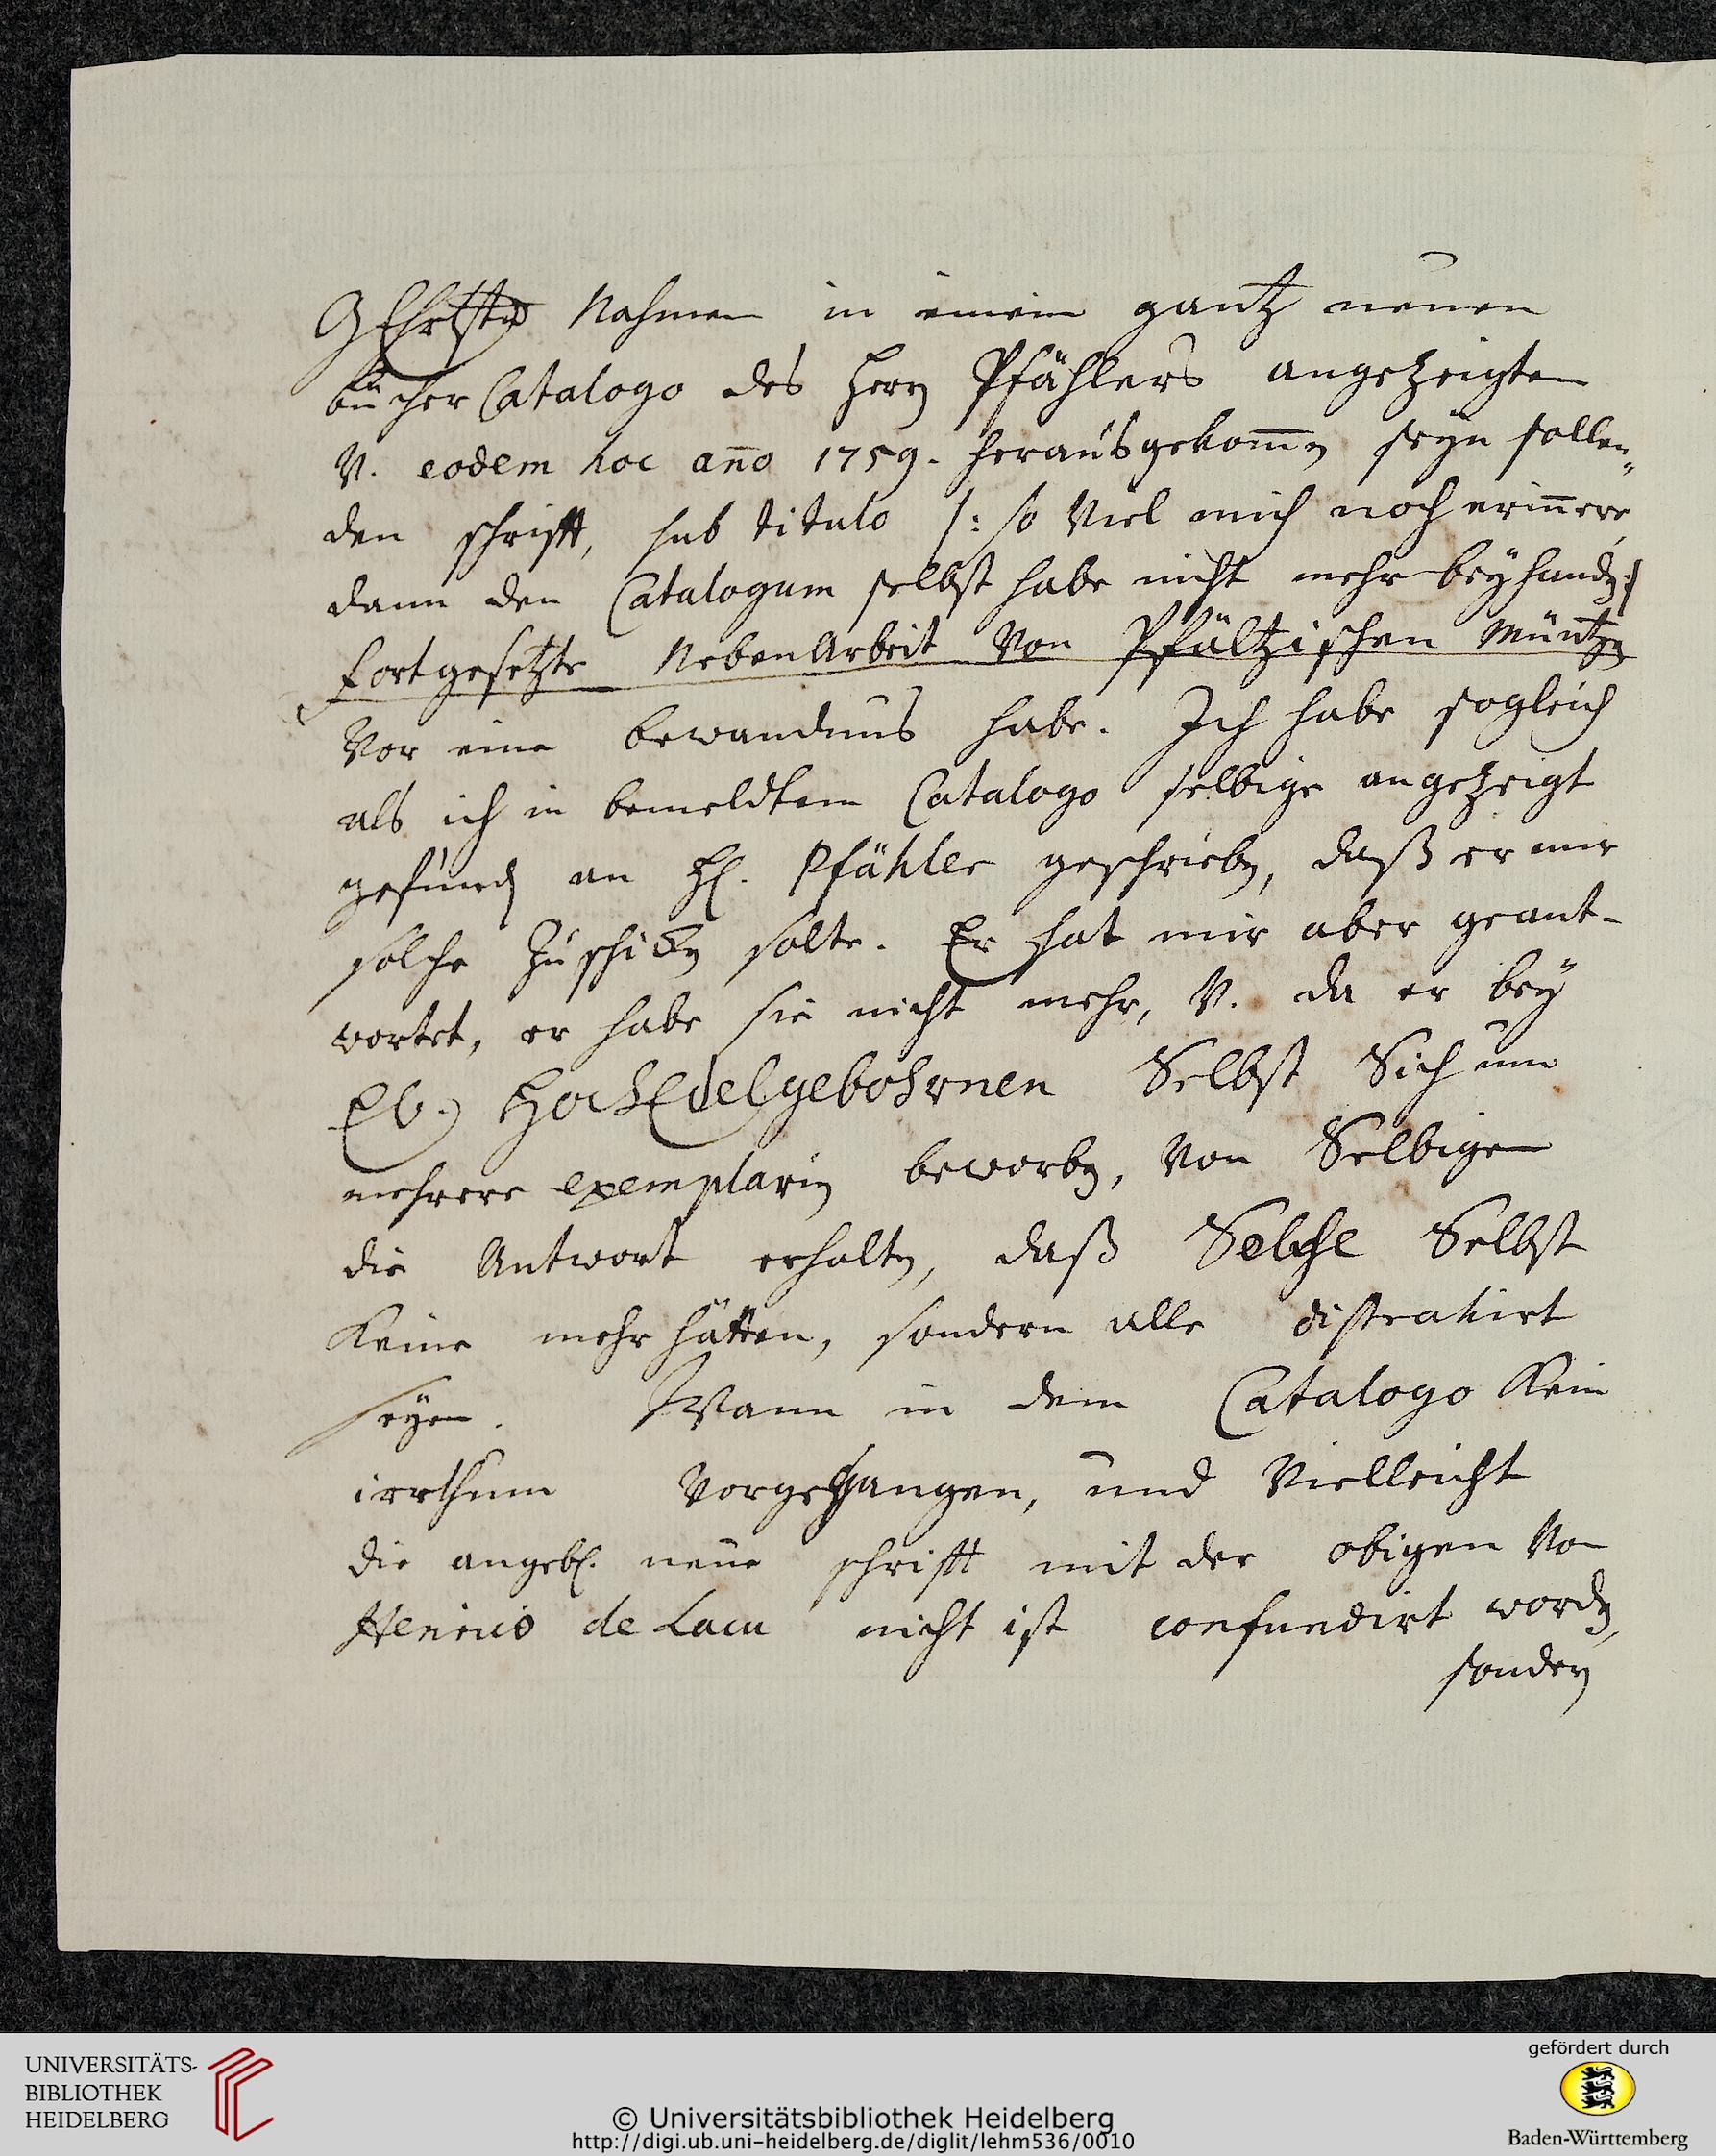 GEhrtsten Nahmen in einem gantz neuen
bücher Catalogo des Herrn Pfählers angezeigten
V. eodem hoc año 1759. herausgekom̄en seyn sollen„
den schrifft, sub titulo /: so Viel mich noch erin̄ere,
dann den Catalogum selbst habe nicht mehr beyhanden :/
fortgesetzte NebenArbeit Von Pfältzischen Müntzen
Vor eine bewandnus habe. Ich habe sogleich
als ich in bemeldtem Catalogo selbige angezeigt
gefunden an H. Pfähler geschrieben, daß er mir
solche Zuschicken solte. Er hat mir aber geant-
wortet, er habe sie nicht mehr, V. da er bey
Ew. HochEdelgebohrnen Selbst Sich um
mehrere exemplarien beworben, Von Selbigen
die Antwort erhalten, daß Solche Selbst
Keine mehr hätten, sondern alle distrahirt
seyen. Wann in dem Catalogo Kein
irrthum Vorgegangen, und Vielleicht
die angebl. neue schrifft mit der obigen Von
Henrico de Lacu nicht ist confundirt worden,
sondern
UNIVERSITÄTS-
BIBLIOTHEK
HEIDELBERG
© Universitätsbibliothek Heidelberg
http://digi.ub.uni-heidelberg.de/diglit/lehm536/0010
gefördert durch
Baden-Württemberg